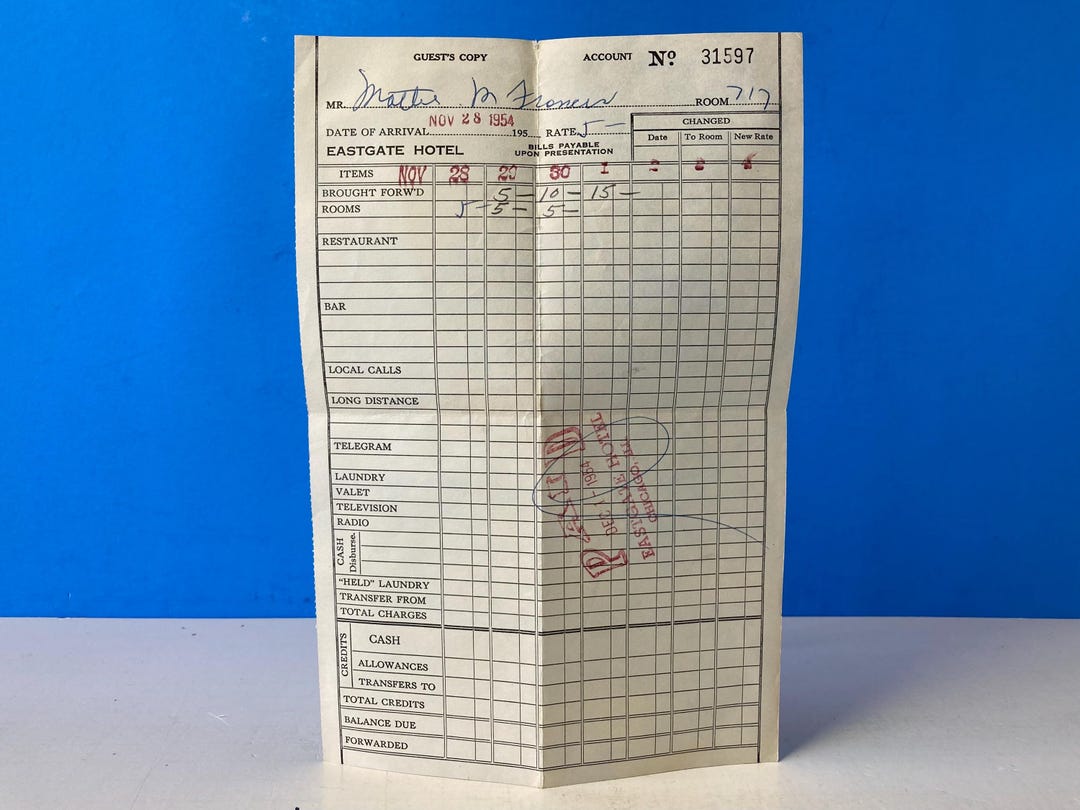 GUEST'S COPY ACCOUNT Nº 31597
MR. Mattie M Francis ROOM 717
NOV 28 1954
DATE OF ARRIVAL 195 RATE 5 —
CHANGED
Date To Room New Rate
EASTGATE HOTEL BILLS PAYABLE UPON PRESENTATION
ITEMS NOV 28 29 30 1 2 3 4
BROUGHT FORW'D 5 — 10 — 15 —
ROOMS 5 — 5 — 5 —
RESTAURANT
BAR
LOCAL CALLS
LONG DISTANCE
TELEGRAM
LAUNDRY
VALET
TELEVISION
RADIO
CASH Disburse.
"HELD" LAUNDRY
TRANSFER FROM
TOTAL CHARGES
CREDITS
CASH
ALLOWANCES
TRANSFERS TO
TOTAL CREDITS
BALANCE DUE
FORWARDED
PAID
DEC 1 - 1954
EASTGATE HOTEL
CHICAGO, ILL.